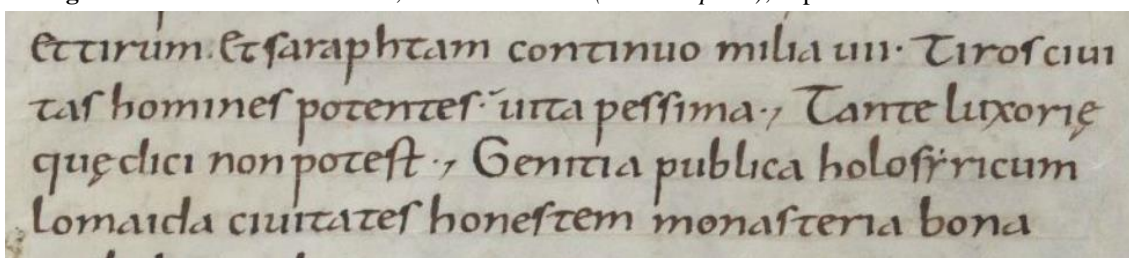 et tirum. Et saraphtam continuo milia uii· Tiros ciui
tas homines potentes· uita pessima·, Tante luxorię
quę dici non potest·, Genitia publica holosẏricum
Lomaida ciuitates honestem monasteria bona